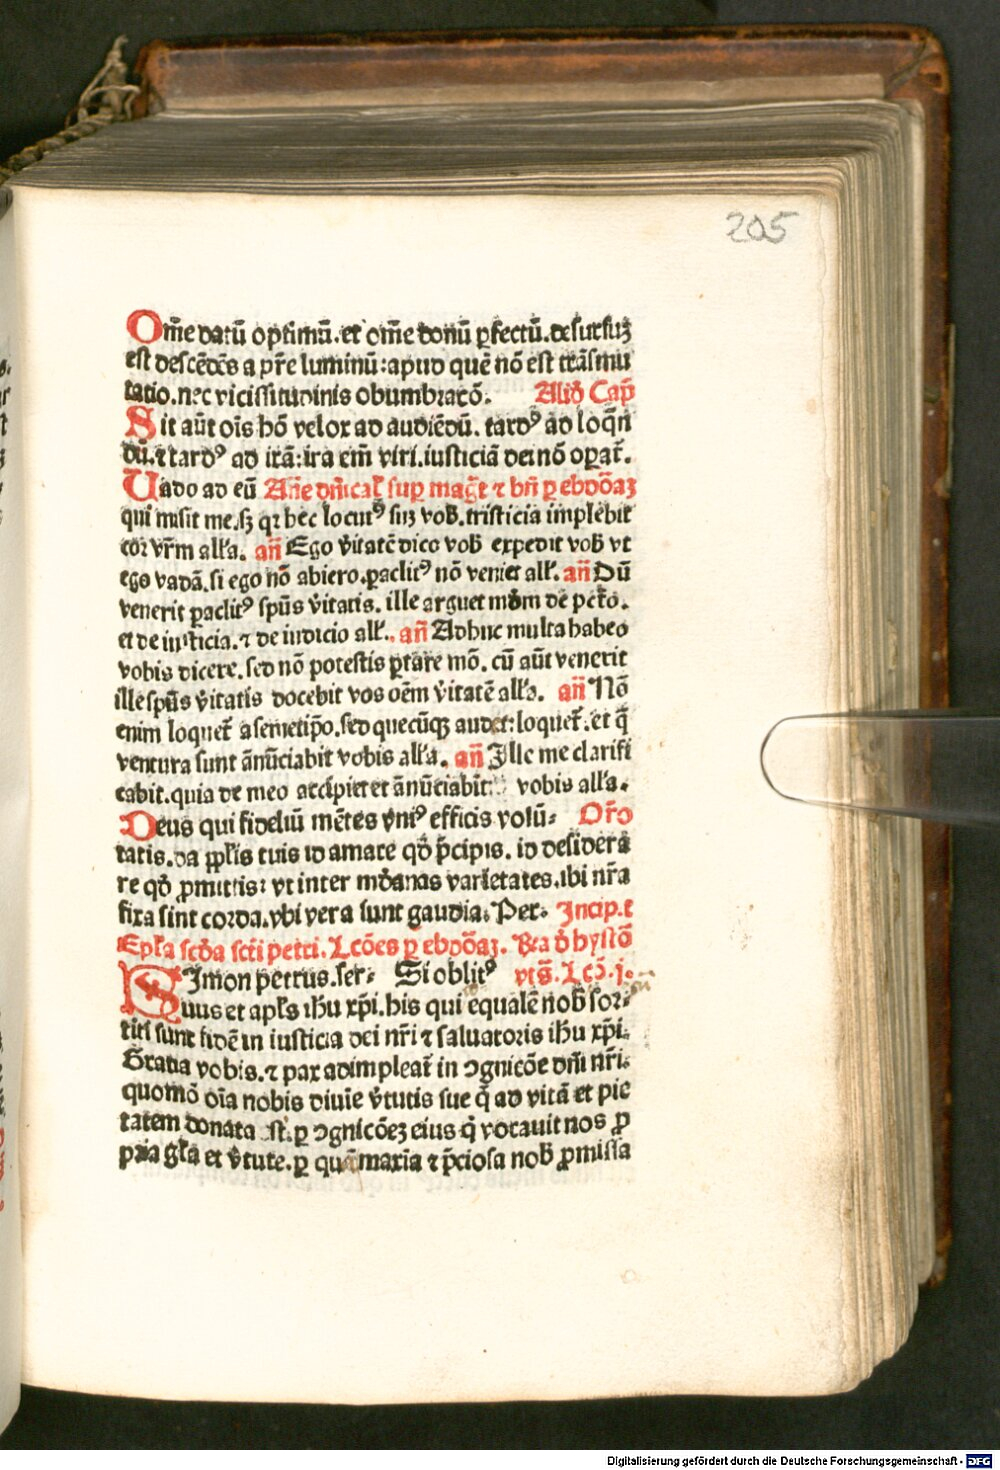 205
Om̄e datū optimū.et om̄e donū ꝑfectū.desursuꝫ
est descēdēs a pr̄e luminū:apud quē nō est trāsmu
tatio.nec vicissitudinis obumbratō. Aliđ Cap̄
Sit aūt oīs hō velox ad audiēdū. tardꝰ ad loqn̄
dū.⁊ tardꝰ ad irā:ira em̄ viri.iusticiā dei nō oꝑat̄.
Uado ad eū Añe dn̄ical̄ suꝑ maḡt ⁊ bn̄ ꝑ ebdōaꝫ
qui misit me.sꝫ qꝛ hec locutꝰ suꝫ vob̄.tristicia implebit
cor vr̄m all'a. an̄ Ego v̄itatē dico vob̄ expedit vob̄ vt
ego vadā.si ego nō abiero.ꝑaclitꝰ nō veniet all'. an̄ Dū
venerit ꝑaclitꝰ spūs v̄itatis. ille arguet mūdm de pctō.
et de iusticia.⁊ de iudicio all'. an̄ Adhuc multa habeo
vobis dicere.sed nō potestis ꝑtare mō. cū aūt venerit
ille spūs v̄itatis docebit vos oēm v̄itatē all'a. an̄ Nō
enim loquet̄ a semetip̄o.sed quecūqꝫ audiet:loquet̄.et q̄
ventura sunt ānūciabit vobis all'a. an̄ Ille me clarifi
cabit.quia de meo accipiet et ānūciabit: vobis all'a.
Deus qui fideliū mētes vniꝰ efficis volū⸗ Or̄o
tatis.da ppl'is tuis id amare qđ p̄cipis. id desidera
re qđ ꝓmittis: vt inter mūdanas varietates.ibi nr̄a
fixa sint corda.vbi vera sunt gaudia. Per. Incip.t
Epl'a scđa scti petri. Lcōes ꝑ ebdōaꝫ. R̄a đ hystō
Simon petrus.ser⸗ Si oblitꝰ vts̄. Lcō.j.
uus et apl's ihū xp̄i.his qui equalē nob̄ sor⸗
titi sunt fidē in iusticia dei nr̄i ⁊ saluatoris ihū xp̄i.
Gratia vobis.⁊ pax adimpleat̄ in ꝯgnicōe dn̄i nr̄i.
quomō oīa nobis diuīe v̄tutis sue q̄ ad vitā et pie
tatem donata st̄.ꝑ ꝯgnicōeꝫ eius q̇ vocauit nos ꝓ
pria gl'a et v̄tute.ꝑ quē maxīa ⁊ p̄ciosa nob̄ ꝓmissa
Digitalisierung gefördert durch die Deutsche Forschungsgemeinschaft - DFG